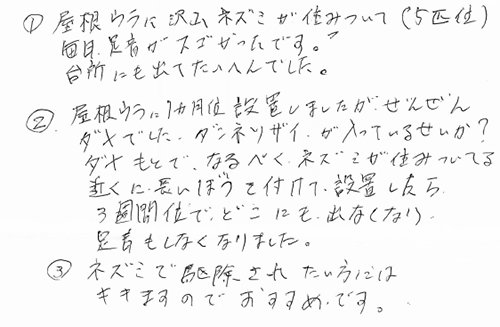 ① 屋根ウラに沢山ネズミが住みついて(5匹位)
毎日足音がスゴかったです。
台所にも出てたいへんでした。
② 屋根ウラに1カ月位設置しましたが、ぜんぜん
ダメでした。ダンネツザイが入っているせいか?
ダメもとで、なるべくネズミが住みついてる
近くに長いぼうを付けて設置したら
3週間位で、どこにも出なくなり
足音もしなくなりました。
③ ネズミで駆除されたい方には
ききますのでおすすめです。